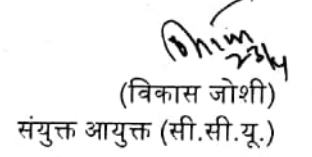 23/4
(विकास जोशी)
संयुक्त आयुक्त (सी.सी.यू.)